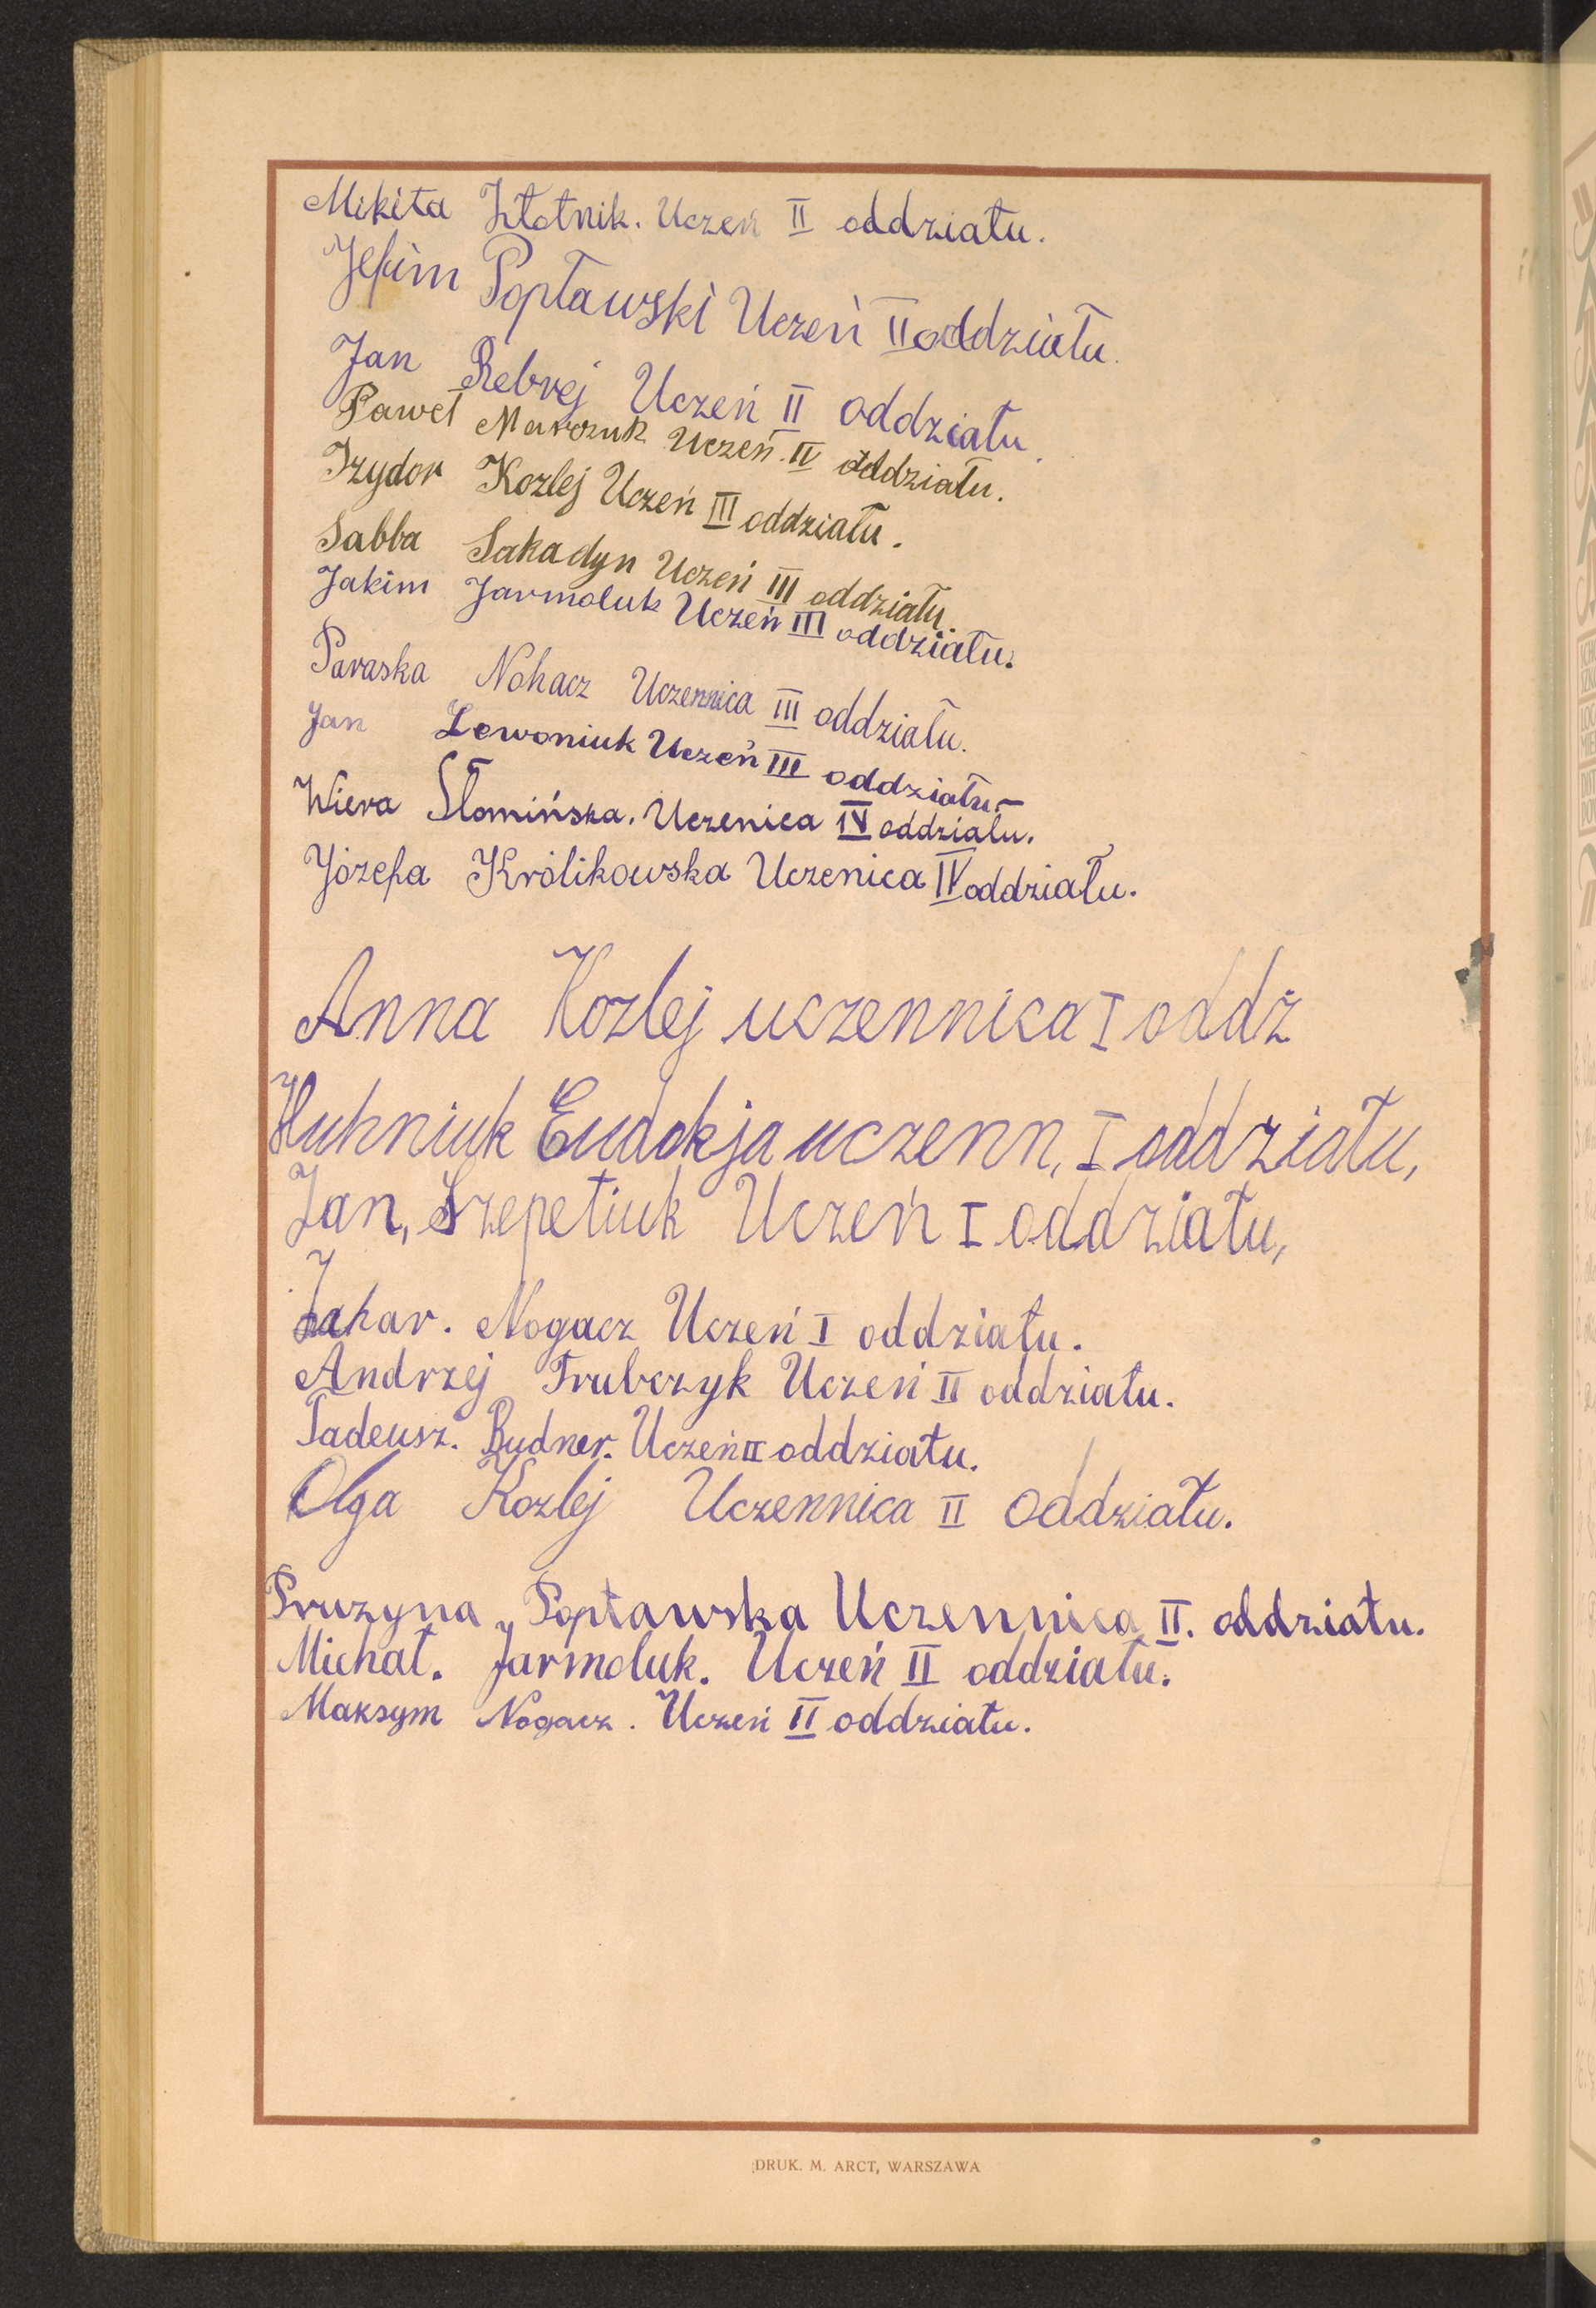 Mikita Złotnik. Uczeń II oddziału.
Jefim Popławski Uczeń II oddziału.
Jan Rebrej Uczeń II oddziału.
Paweł Marczuk Uczeń. II oddziału.
Izydor Kozlej Uczeń III oddziału.
Sabba Sakadyn Uczeń III oddziału.
Jakim Jarmoluk Uczeń III oddziału.
Paraska Nohacz Uczennica III oddziału.
Jan Lewoniuk Uczeń III oddziału
Wiera Słomińska. Uczenica IV oddziału.
Józefa Królikowska Uczenica IV oddziału.
Anna Kozlej uczennica I oddz
Huhniuk Eudokja uczenn, I oddziału,
Jan, Szepetiuk Uczeń I oddziału,
Zahar. Nogacz Uczeń I oddziału.
Andrzej Trubczyk Uczeń II oddziału.
Tadeusz. Budner. Uczeń II oddziału.
Olga Kozlej Uczennica II Oddziału.
Pruzyna Popławska Uczennica II. oddziału.
Michał. Jarmoluk. Uczeń II oddziału.
Maksym Nogacz. Uczeń II oddziału.
DRUK. M. ARCT, WARSZAWA